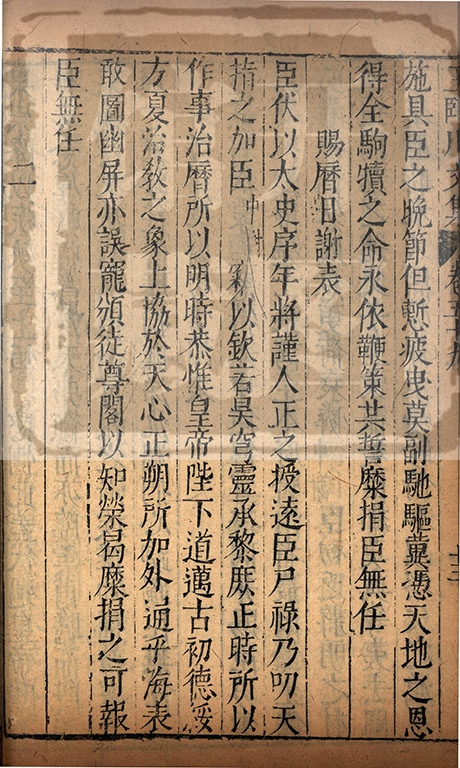 王臨川文集 卷五十九 十三
施具臣之晚節但慙疲曳莫副馳驅冀憑天地之恩
得全駒犢之命永依鞭策共誓糜捐臣無任
賜曆日謝表
臣伏以太史序年將謹人正之授遠臣尸祿乃叨天
指之加臣中謝竊以欽若昊穹靈承黎庶正時所以
作事治曆所以明時恭惟皇帝陛下道邁古初德綏
方夏治教之象上協於天心正朔所加外通乎海表
敢圖幽屏亦誤寵頒徒尊閣以知榮曷糜捐之可報
臣無任
二